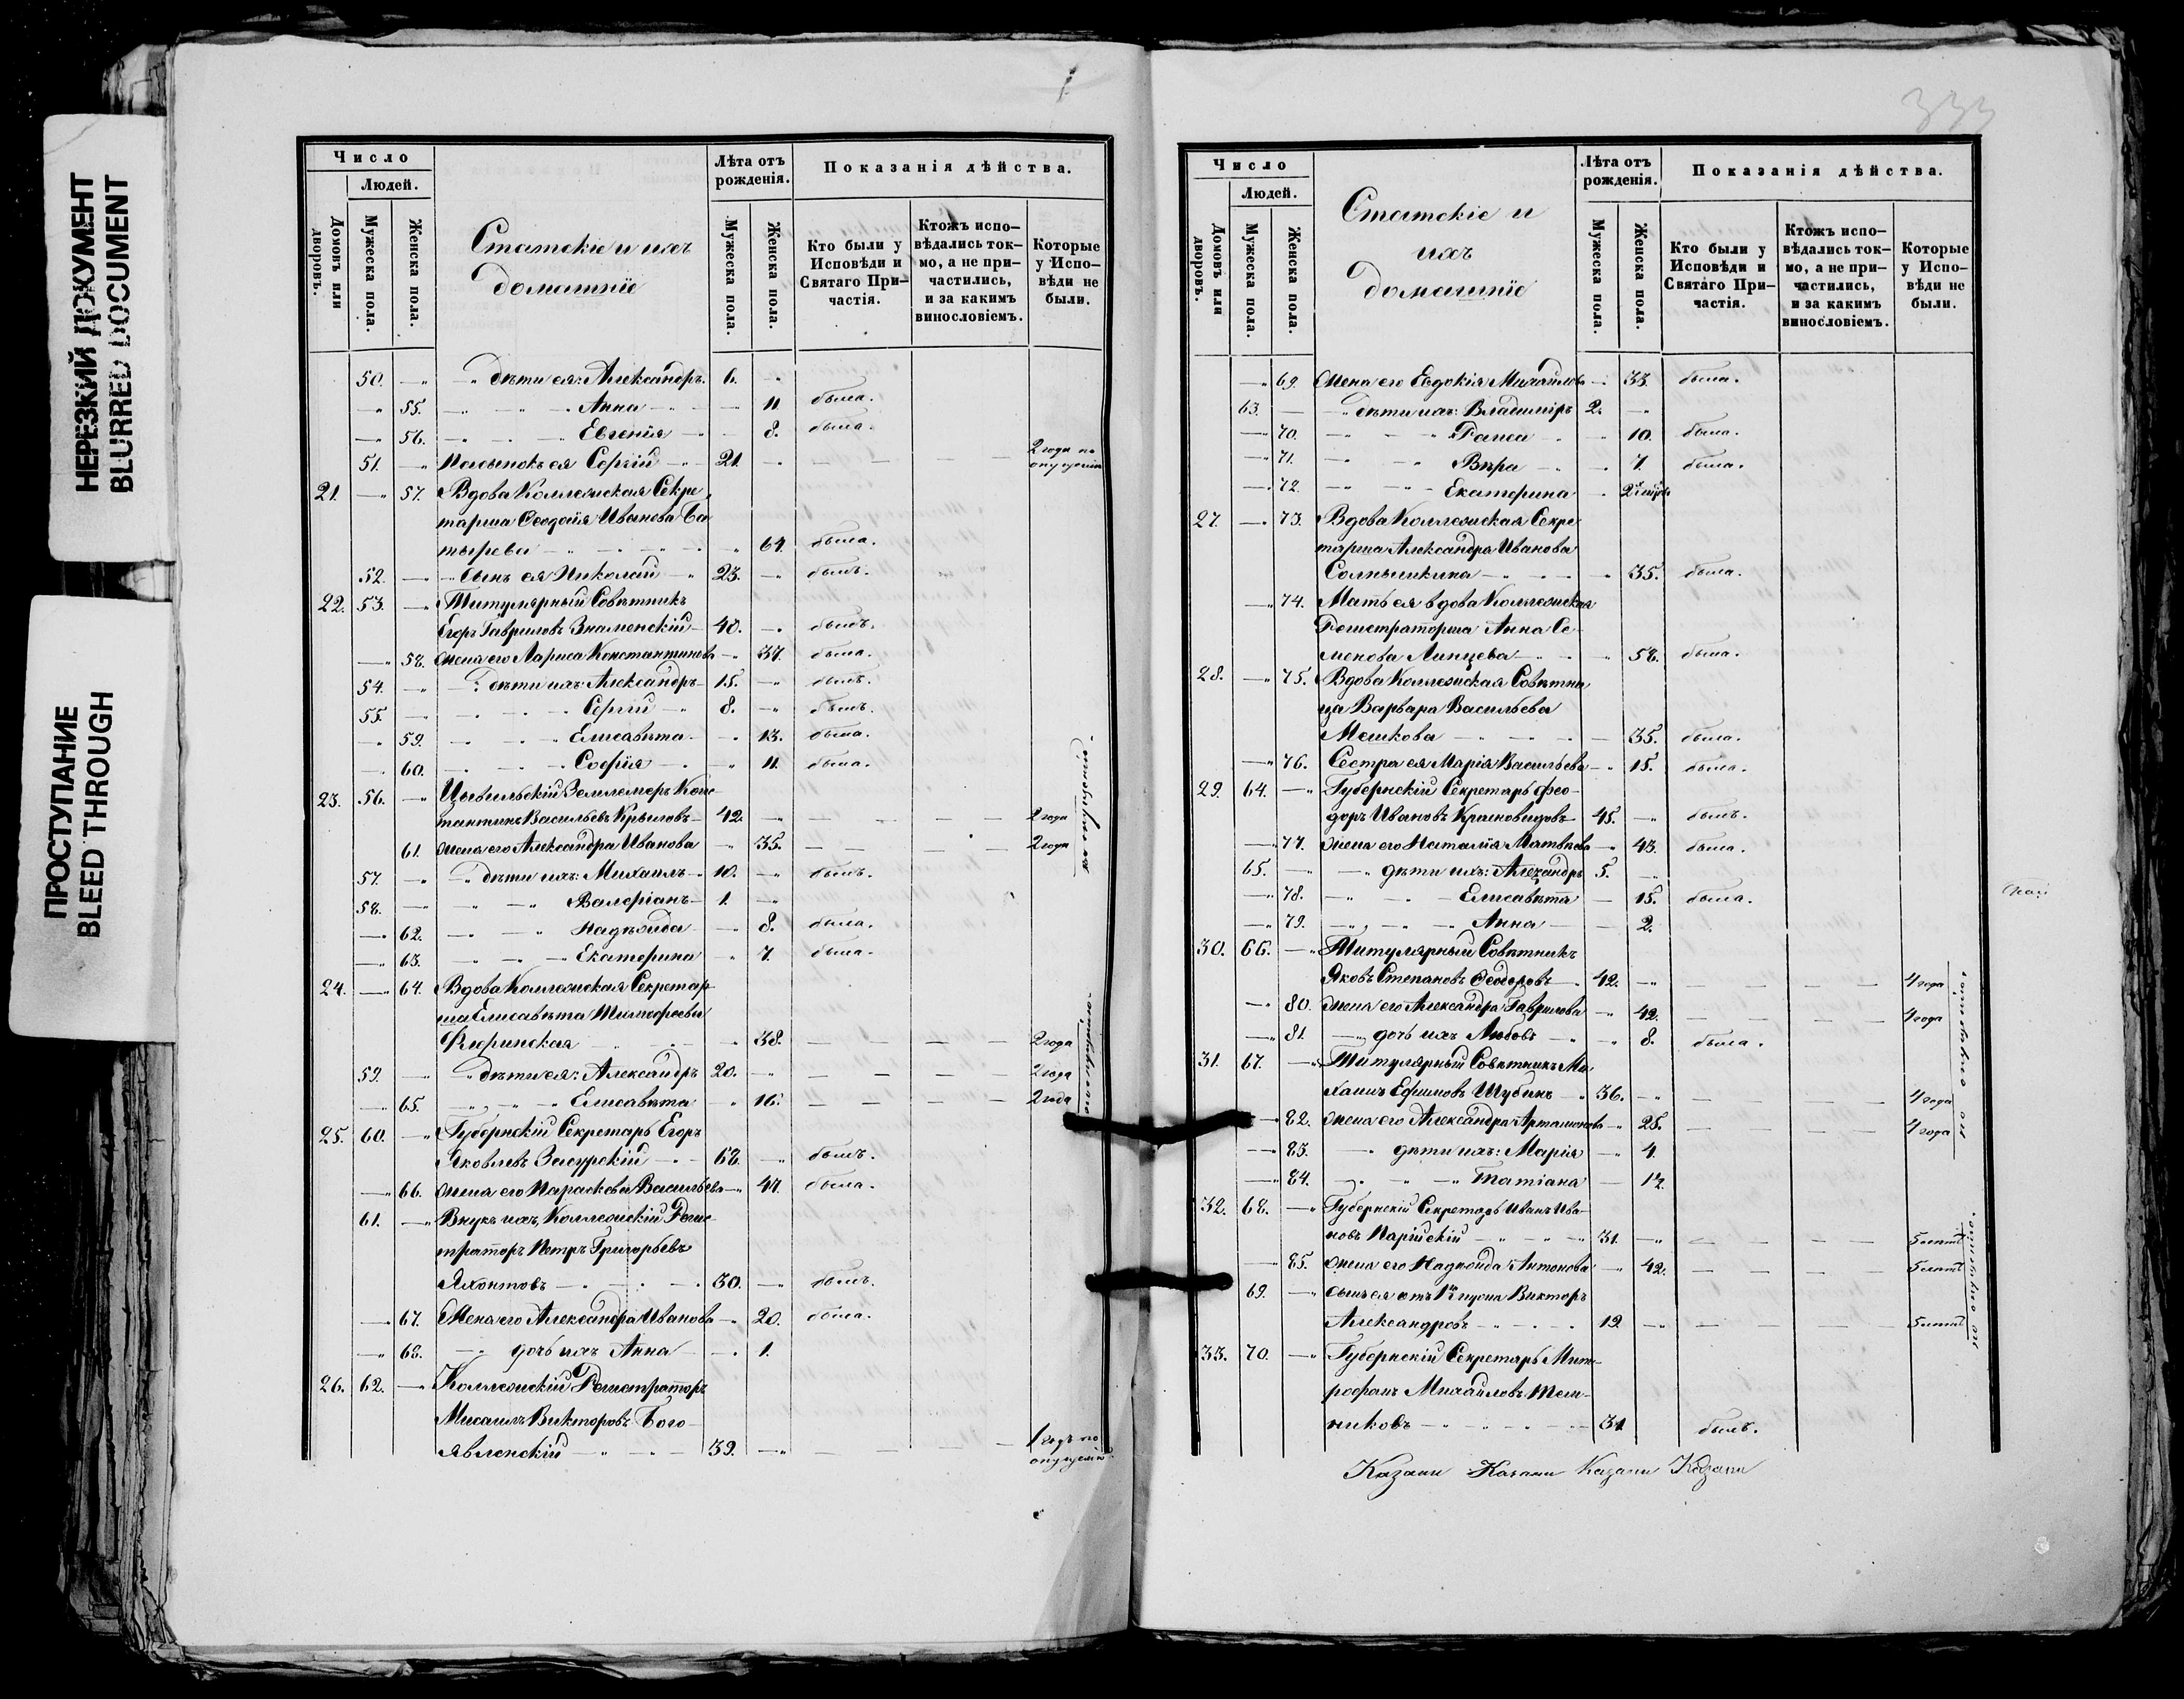 НЕРЕЗКИЙ ДОКУМЕНТ
BLURRED DOCUMENT
ПРОСТУПАНИЕ
BLEED THROUGH
Число
Людей.
Домовъ или дворовъ.
Мужеска пола.
Женска пола.
Статскіе и ихъ
домашніе
Лѣта отъ рожденія.
Мужеска пола.
Женска пола.
Показанія дѣйства.
Кто были у Исповѣди и Святаго Причастія.
Ктожъ исповѣдались токмо, а не причастились, и за какимъ винословіемъ.
Которые у Исповѣди не были.
50. дѣти ея: Александръ. 6.
55. Анна 11. была.
56. Евгенія 8. была.
51. Пасынокъ ея Сергій 21. 2 года по опущенію
21. 57. Вдова Коллежская Секре
тарша Ѳеодосія Иванова Ба
тырева 64. была.
52. Сынъ ея Николай 23. былъ.
22. 53. Титулярный Совѣтникъ
Егоръ Гавриловъ Знаменскій 40. былъ.
58. Жена его Лариса Константинова 37. была.
54. дѣти ихъ: Александръ 15. былъ.
55. Сергій 8. былъ.
59. Елисавета 13. была.
60. Софія 11. была.
23. 56. Цывильскій Землемеръ Конс
тантинъ Васильевъ Крыловъ 42. 2 года
61. жена его Александра Иванова 35. 2 года
57. дѣти ихъ: Михаилъ 10. былъ.
58. Валеріанъ 1.
62. Надежда 8. была.
63. Екатерина 7. была.
по опущенію.
24. 64. Вдова Коллежская Секретар
ша Елисавета Тимофеева
38. 2 года
59. дѣти ея: Александръ 20. 2 года
65. Елисавета 16. 2 года
по опущенію
25. 60. Губернскій Секретарь Егоръ
Яковлевъ Засурскій 68. былъ.
66. жена его Параскева Васильева 47. была.
61. Внукъ ихъ, Коллежскій Регис
траторъ Петръ Григорьевъ
Яхонтовъ 30. былъ.
67. Жена его Александра Иванова 20. была.
68. дочь ихъ Анна 1.
26. 62. Коллежскій Регистраторъ
Михаилъ Викторовъ Бого
явленскій 39. 1 годъ по опущенію.
333
Число
Людей.
Домовъ или дворовъ.
Мужеска пола.
Женска пола.
Статскіе и
ихъ
домашніе
Лѣта отъ рожденія.
Мужеска пола.
Женска пола.
Показанія дѣйства.
Кто были у Исповѣди и Святаго Причастія.
Ктожъ исповѣдались токмо, а не причастились, и за какимъ винословіемъ.
Которые у Исповѣди не были.
69. Жена его Евдокія Михайлова 33. была.
63. дѣти ихъ: Владиміръ 2.
70. Раиса 10. была.
71. Вѣра 7. была.
72. Екатерина
27. 73. Вдова Коллежская Секре
тарша Александра Иванова
Солнышкина 35. была.
74. Мать ея вдова Коллежская
Регистраторша Анна Се
менова Липцева 58. была.
28. 75. Вдова Коллежская Совѣтни
ца Варвара Васильева
Мешкова 35. была.
76. Сестра ея Марія Васильева 15. была.
29. 64. Губернскій Секретарь Фео
доръ Ивановъ Красновидовъ 45. былъ.
77. жена его Наталія Матвѣева 43. была.
65. дѣти ихъ: Александръ 5.
78. Елисавета 15. была.
79. Анна 2.
30. 66. Титулярный Совѣтникъ
Яковъ Степановъ Ѳеодоровъ 42. 4 года
80. жена его Александра Гаврилова 42. 4 года
81. дочь ихъ Любовь 8. была.
31. 67. Титулярный Совѣтникъ Ми
хаилъ Ефимовъ Шубинъ 36. 4 года
82. жена его Александра Артамонова 28. 4 года
83. дѣти ихъ: Марія 4.
84. Татіана
по опущенію.
32. 68. Губернскій Секретарь Иванъ Ива
новъ Парійскій 31. 5 лѣтъ
85. жена его Надежда Антонова 42. 5 лѣтъ
69. сынъ ея отъ 1го мужа Викторъ
Александровъ 12 5 лѣтъ
по опущенію.
33. 70. Губернскій Секретарь Мит
рофанъ Михайловъ Тем
никовъ 31 былъ.
Казани Казани Казани Казани